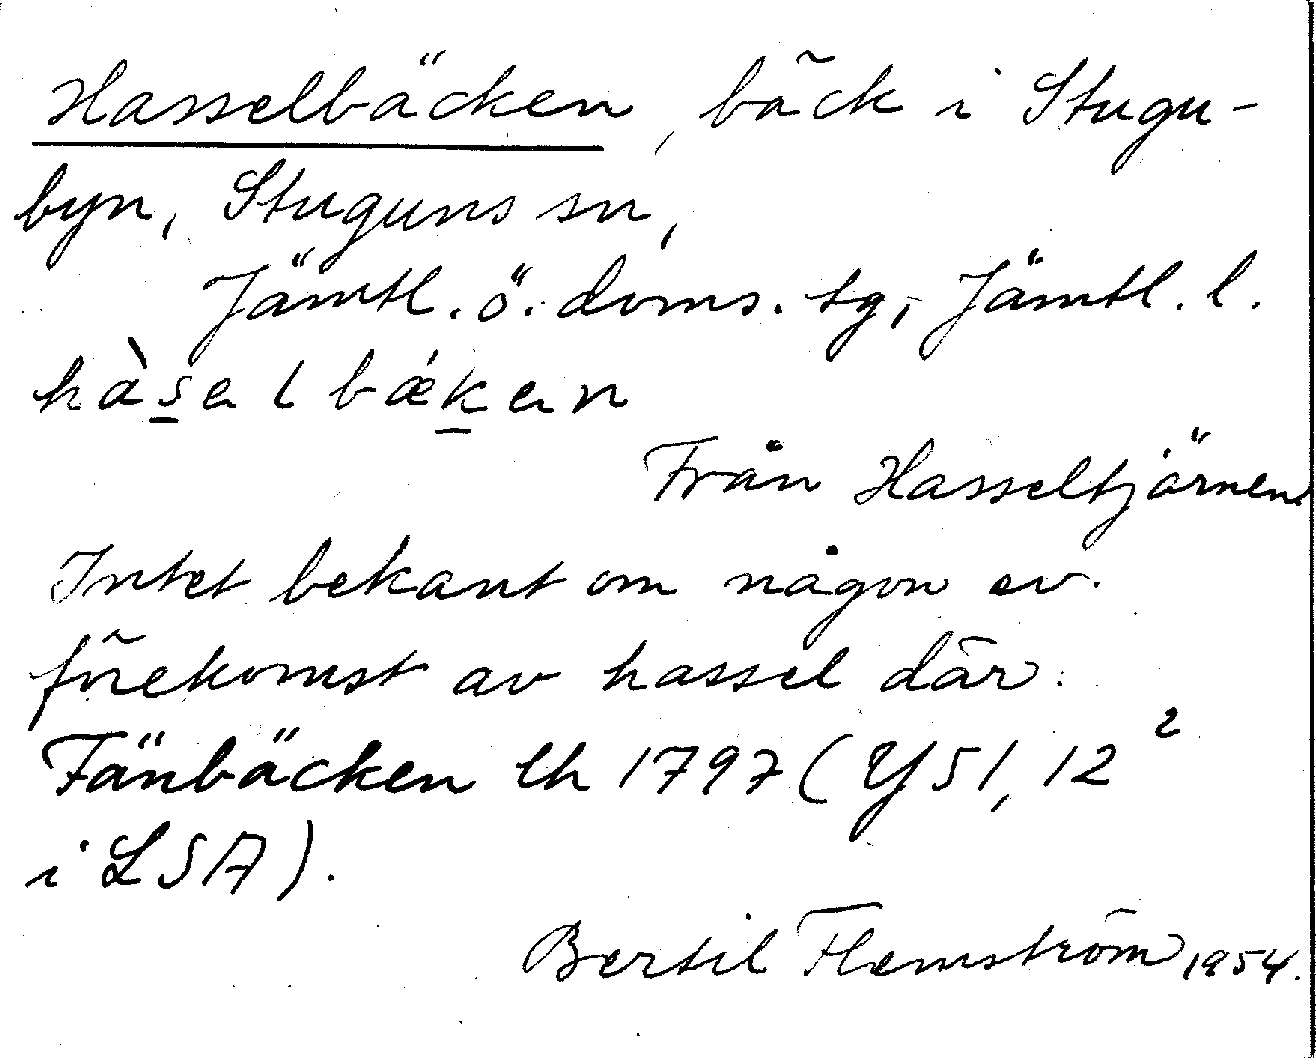 Hasselbäcken, bäck i Stugu-
byn, Stuguns sn,
Jämtl. ö. doms. tg, Jämtl. l.
hàsalbǽkan
Från Hasseltjärnen
Intet bekant om någon ev.
förekomst av hassel där.
Fänbäcken lh 1797 (Y51, 12²
i LSA).
Bertil Flemström 1954.